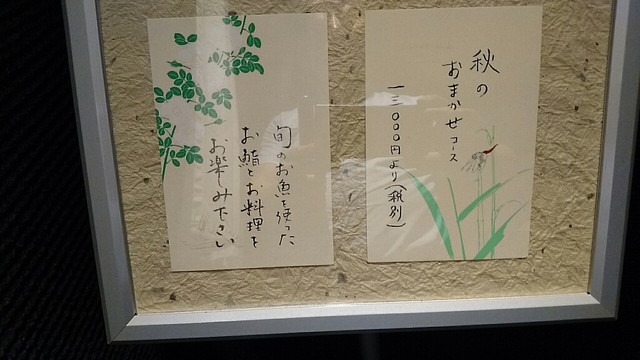 秋の
おまかせコース
一三〇〇〇円より(税別)
旬のお魚を使った
お鮨とお料理を
お楽しみ下さい